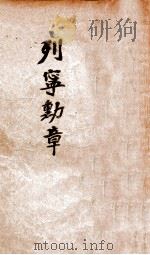 列寧勳章
www.mtoou.info